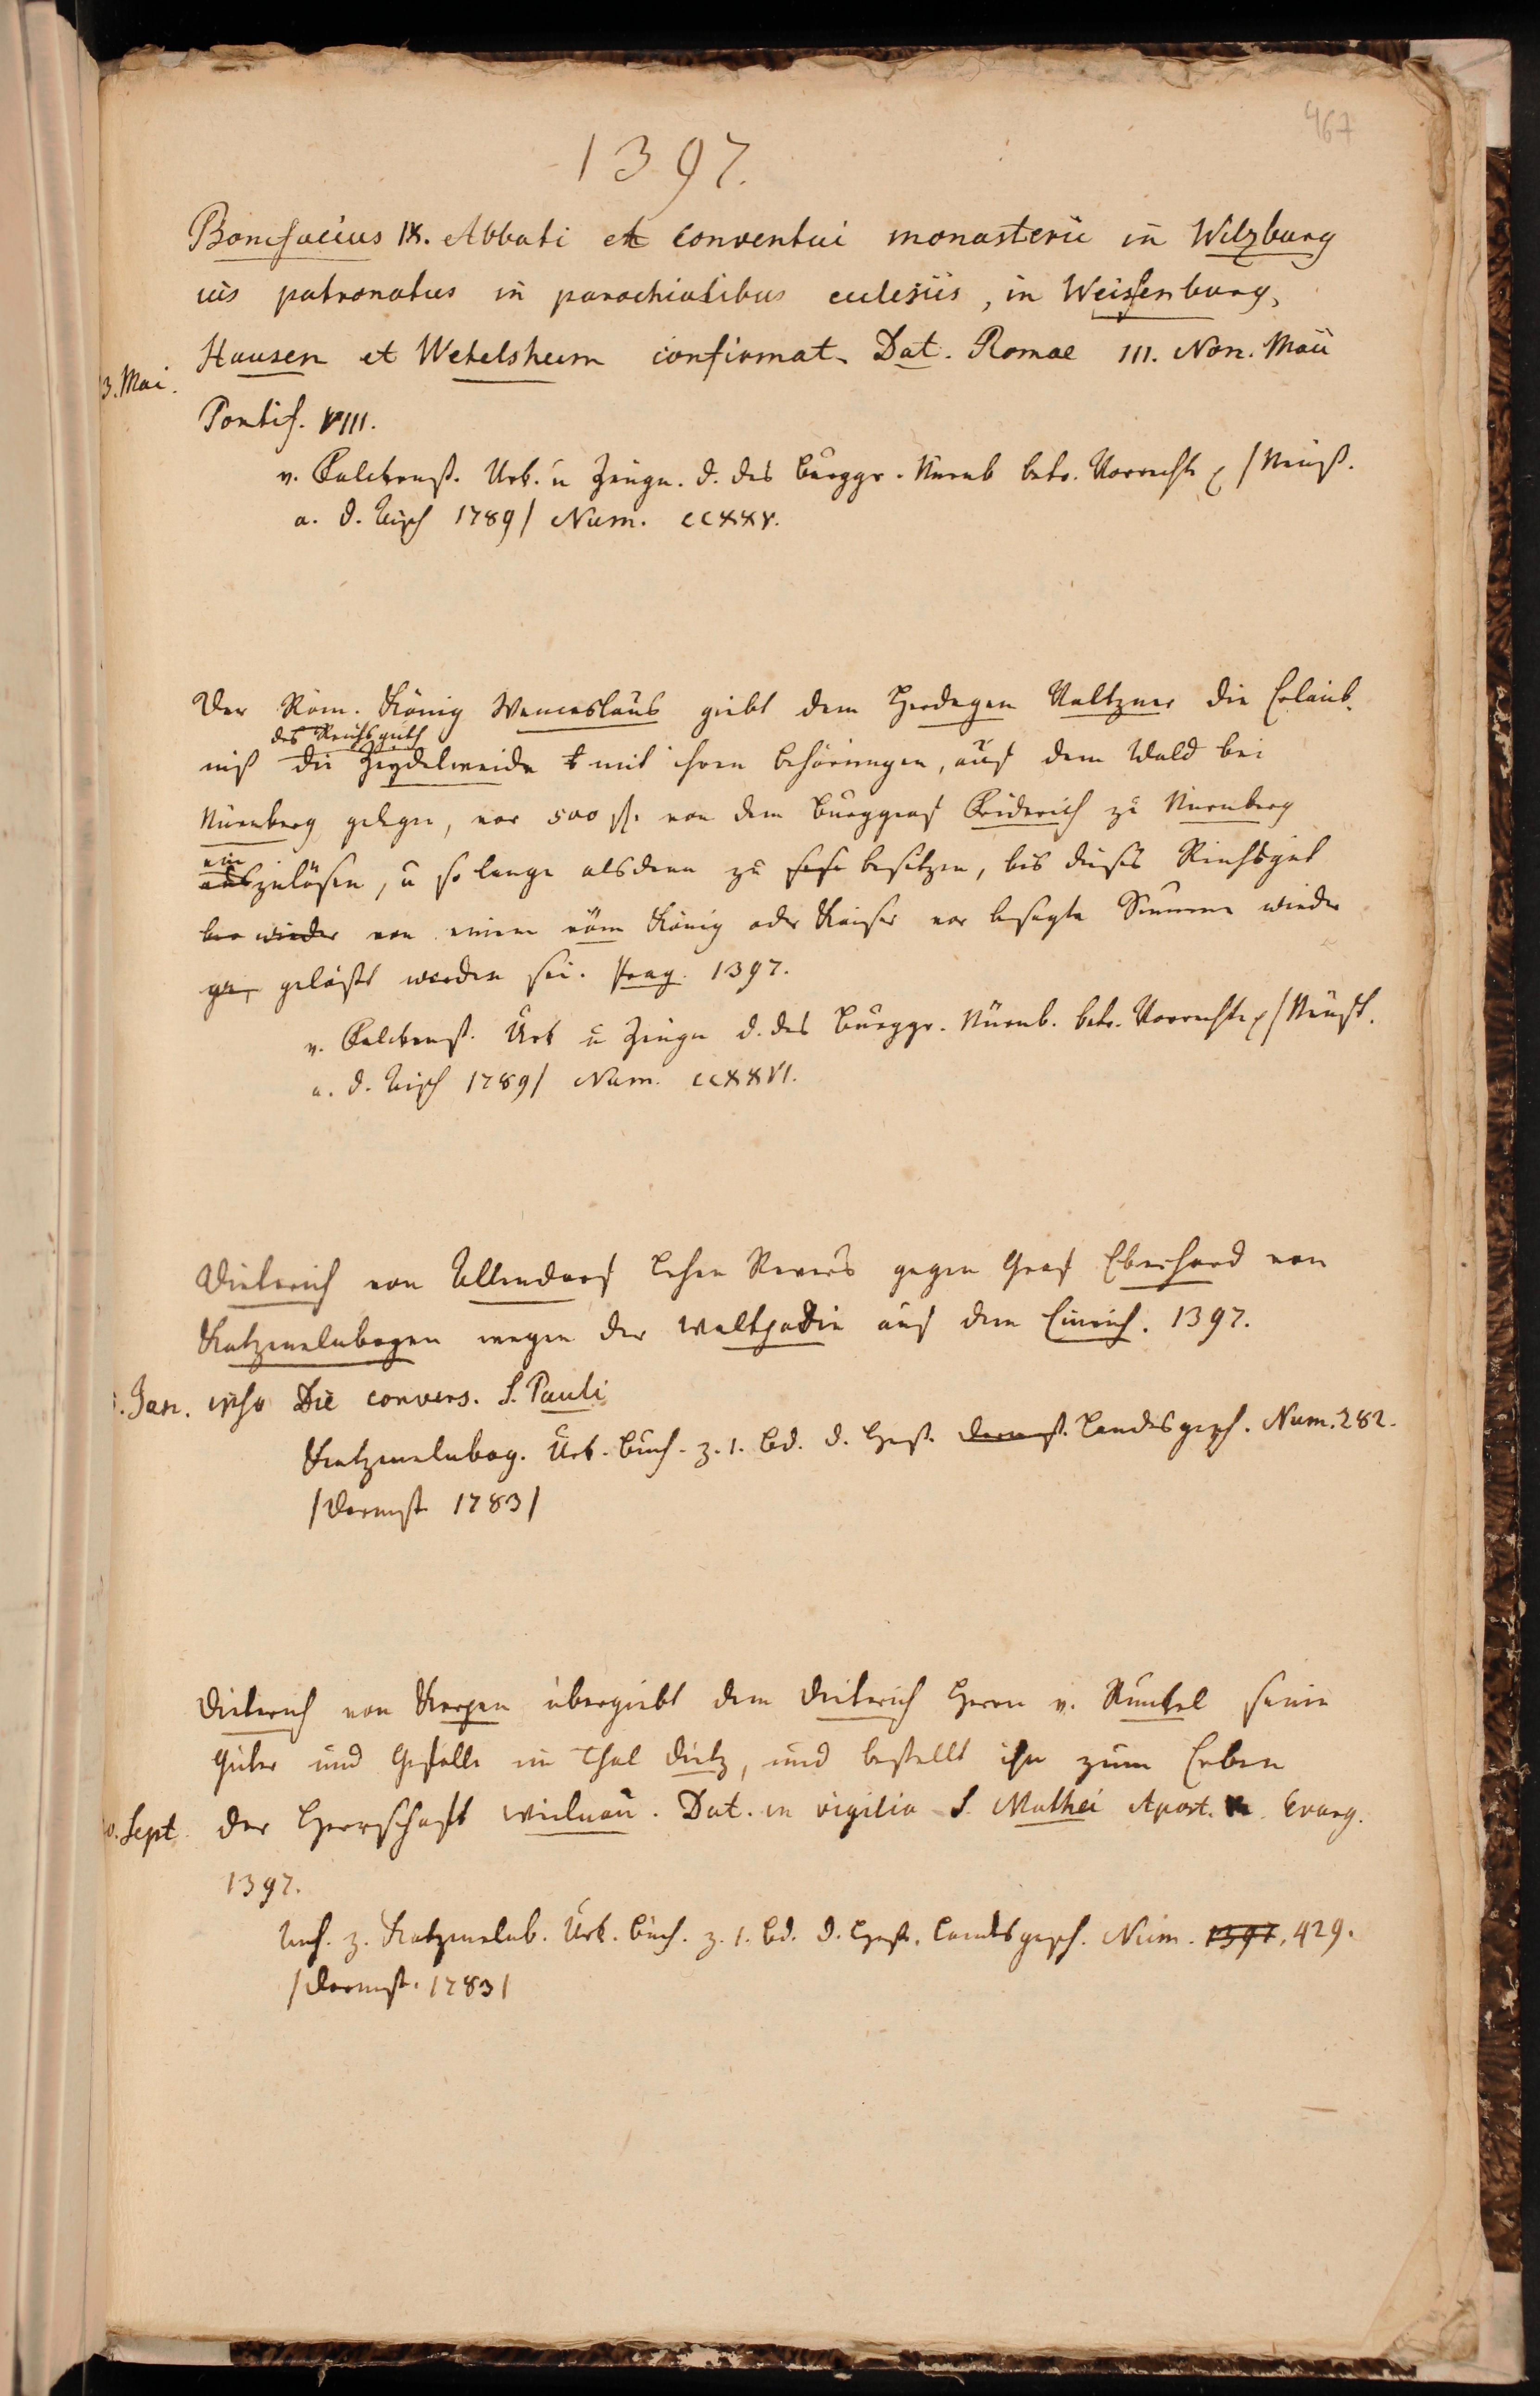 467
1397.
Bonifacius IX. Abbati et conventui monasterii in Wilzburg
ius patronatus in parochialibus ecclesiis, in Weisenburg,
Hausen et Wetelsheim confirmat. Dat. Romae III. Non. Maii
3. Mai.
Pontif. VIII.
v. Falckenst. Urk. u Zeugn. d. des Burggr. Nürnb betr. Vorrechte /Neust.
a. d. Aisch 1789/ Num. CCXXV.
Der Röm. König Wenceslaus giebt dem Herdegen Valtzner die Erlaub-
des Reichs guth
niß die Zeydelweide mit ihren Behörungen, auf dem Wald bei
Nürnberg gelegen, vor 500 fl. von dem Burggraf Friderich zu Nürnberg
ein
auszulösen, u so lange alsdenn zu besitzen, bis dieses Reichsgut
wieder von einem röm König oder Kaiser vor besagte Summe wieder
ge, gelößt worden sei. Prag. 1397.
v. Falckenst. Urk u Zeugn d. des Burggr. Nürnb. betr. Vorrechte /Neust.
a. d. Aisch 1789/ Num. CCXXVI.
Dieterich von Allendorf Lehen Revers gegen Graf Eberhard von
Katzenelnbogen wegen der Waltpodie auf dem Einrich. 1397.
Jan. ipso Die convers. S. Pauli
Katzenelnbog. Urk. Buch. z. 1. Bd. d. Hess. Darmst. Landesgesch. Num. 282.
/Darmst 1783/
Dieterich von Kerpen übergiebt dem Dieterich Herrn v. Runkel seine
Güter und Gefälle im Thal Dietz, und bestellt ihn zum Erben
0. Sept. der Herrschaft Wielnau. Dat. in vigilia S. Mathei Apost. Evang.
1397.
Urk. z. Katzenelnb. Urk. Buch. z. 1. Bd. d. Hess. Landesgesch. Num. 1397. 429.
/Darmst. 1783/